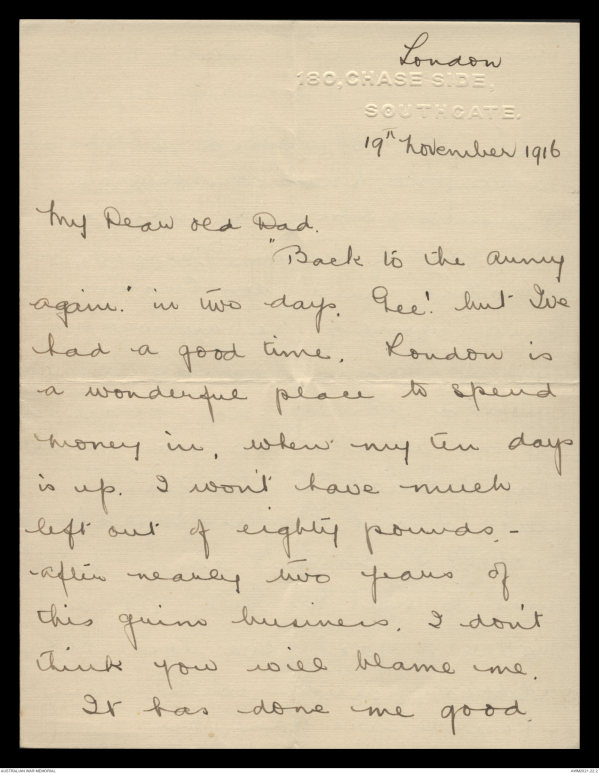 London
180, CHASE SIDE,
SOUTHGATE.
19th November 1916
My Dear old Dad.
"Back to the Army
again." in two days. Gee! but I've
had a good time. London is
a wonderful place to spend
money in, when my ten days
is up. I won't have much
left out of eighty pounds. -
after nearly two years of
this grim business. I don't
think you will blame me.
It has done me good.
AUSTRALIAN WAR MEMORIAL